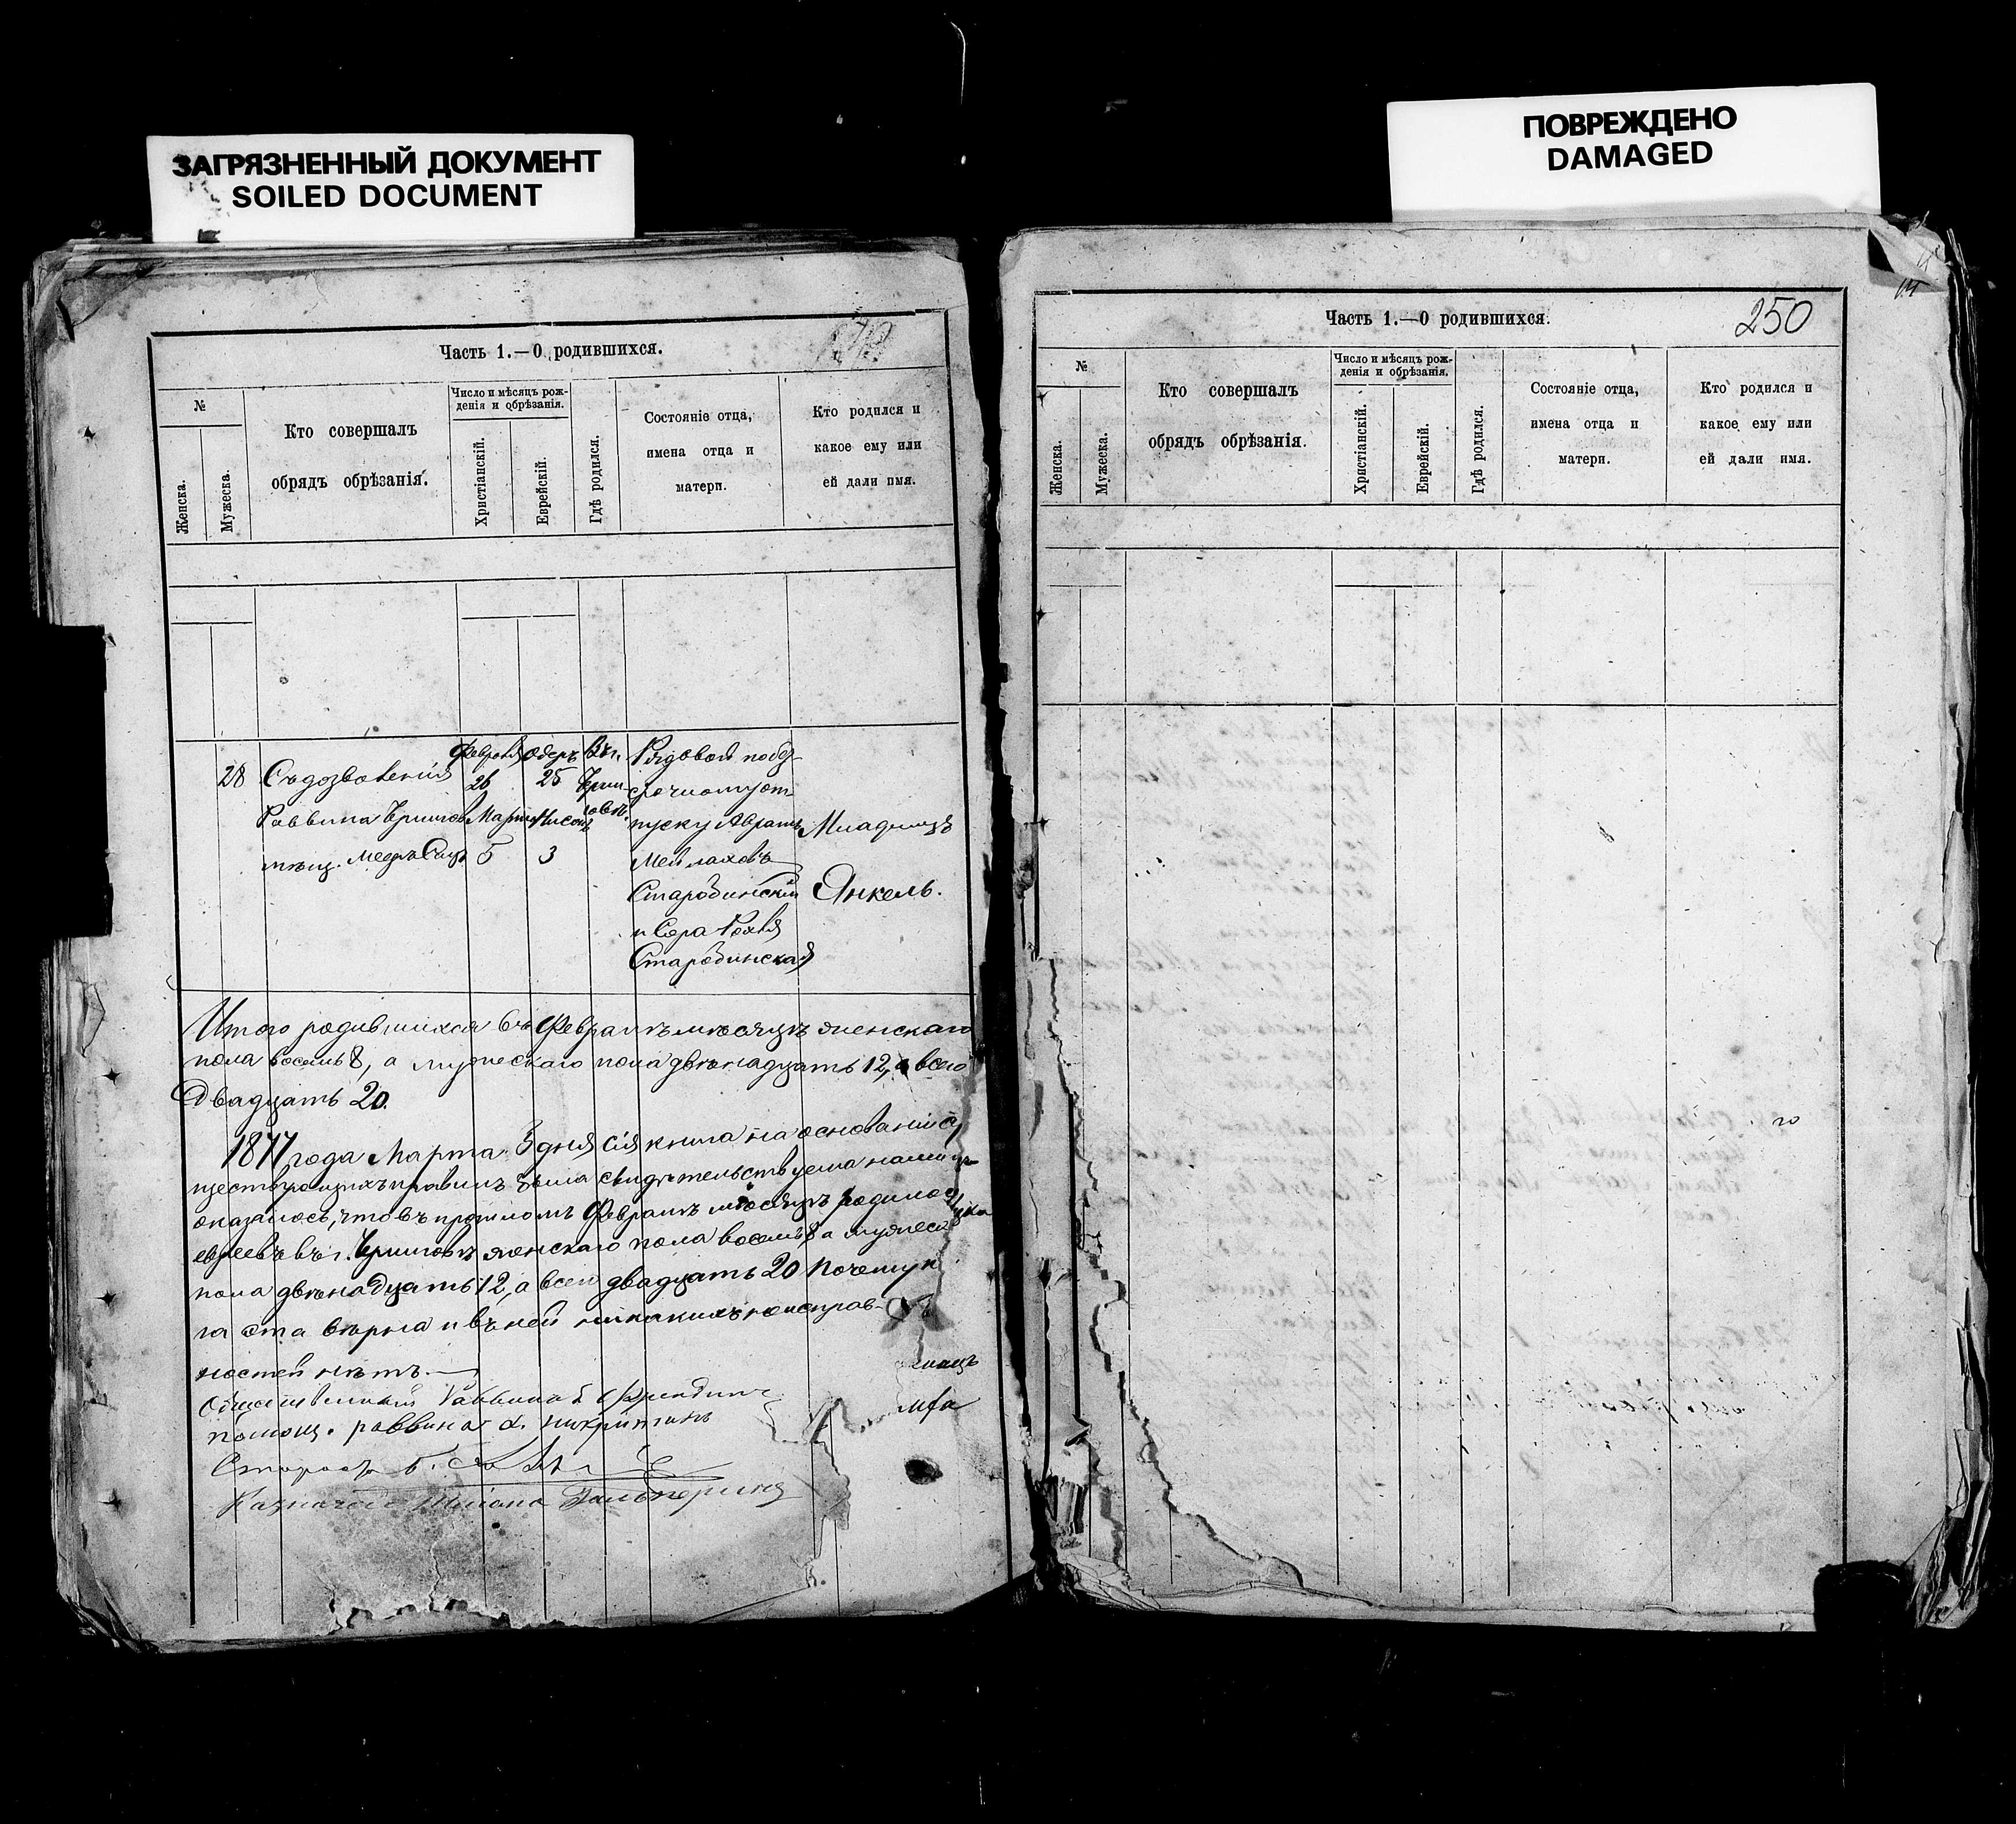 ЗАГРЯЗНЕННЫЙ ДОКУМЕНТ
SOILED DOCUMENT
ПОВРЕЖДЕНО
DAMAGED
Часть 1.—О родившихся.
№
Женска.
Мужеска.
Кто совершалъ
обрядъ обрѣзанія.
Число и мѣсяцъ рож-
денія и обрѣзанія.
Христіанскій.
Еврейскій.
Гдѣ родился.
Состояніе отца,
имена отца и
матери.
Кто родился и
какое ему или
ей дали имя.
28
Съ дозволенія
Раввина
мѣщ.
Февраля
26
Марта
5
Одеръ
25
Нисонъ
3
Въ г.
Черни-
говѣ.
Рядовой по без-
срочному от-
пуску Абрамъ
Мейлаховъ
Стародинскій
и Сора Рохля
Стародинская
Младенецъ
Янкель.
Итого родившихся въ Февралѣ мѣсяцѣ женскаго
пола восемь 8, а мужескаго пола двѣнадцать 12, а всего
Двадцать 20.
1877 года Марта 3 дня сія книга на основаніи су
ществующихъ правилъ была свидѣтельствуема нами
оказалось, что въ прошломъ Февралѣ мѣсяцѣ родилось
евреевъ въ г. Черниговѣ женскаго пола восемь 8 а мужеска
пола двѣнадцать 12, а всего двадцать 20 Почему к
га эта вѣрна и въ ней никакихъ неисправ-
ностей нѣтъ.
Общественный Раввинъ
помощ. раввина
Староста
Казначей Гальперинъ
250
Часть 1.—О родившихся.
№
Женска.
Мужеска.
Кто совершалъ
обрядъ обрѣзанія.
Число и мѣсяцъ рож-
денія и обрѣзанія.
Христіанскій.
Еврейскій.
Гдѣ родился.
Состояніе отца,
имена отца и
матери.
Кто родился и
какое ему или
ей дали имя.